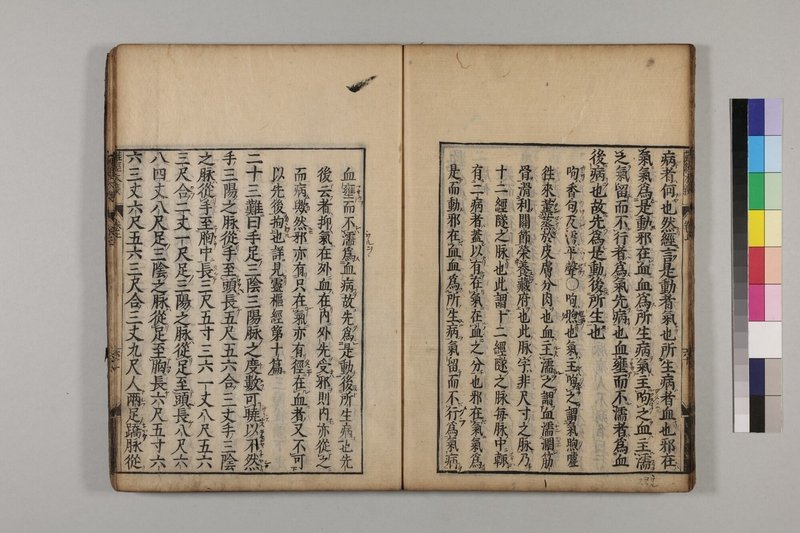 病者何也然經言是動者氣也所生病者血也邪在
氣氣爲是動邪在血血爲所生病氣主呴之血主濡
之氣留而不行者爲氣先病也血壅而不濡者爲血
後病也故先爲是動後所生也
呴香句反 平聲○呴煦也氣主呴之謂氣煦噓
往來薰蒸於皮膚分肉也血主濡之謂血濡潤筋
骨滑利關節榮養藏府也此脉字非尺寸之脉乃
十二經隧之脉也此謂十二經隧之脉每脉中輙
有二病者蓋以有在氣在血之分也邪在氣氣爲
是而動邪在血血爲所生病氣留而不行爲氣病
血壅而不濡爲血病故先爲是動後所生病也先
後云者抑氣在外血在内外先受邪則内亦從之
而病歟然邪亦有只在氣亦有徑在血者又不可
以先後拘也詳見靈樞經第十篇
二十三難曰手足三陰三陽脉之度數可曉以不然
手三陽之脉從手至頭長五尺五六合三丈手三陰
之脉從手至胸中長三尺五寸三六一丈八尺五六
三尺合二丈一尺足三陽之脉從足至頭長八尺六
八四丈八尺足三陰之脉從足至胸長六尺五寸六
六三丈六尺五六三尺合三丈九尺人兩足蹻脉從